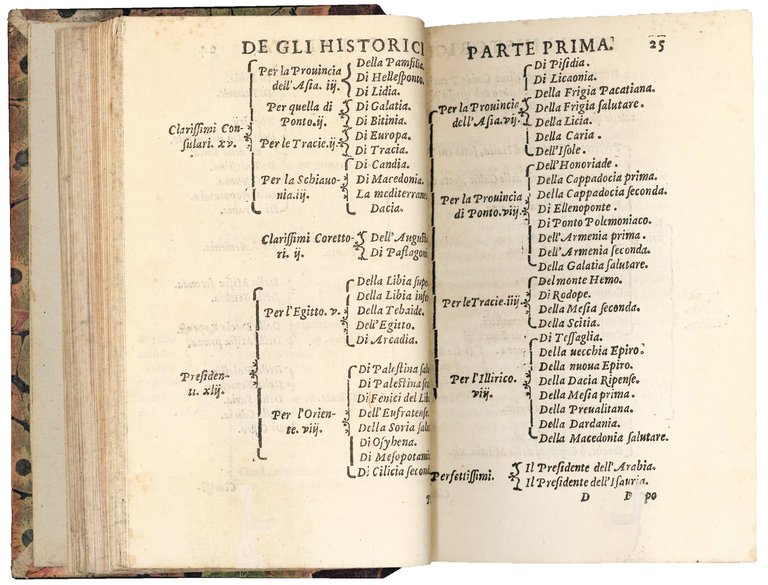 DE GLI HISTORICI
Clarissimi Con-
sulari. xv.
Per la Prouincia
dell'Asia. iij.
Della Pamfilia.
Di Hellesponto.
Di Lidia.
Per quella di
Ponto. ij.
Di Galatia.
Di Bitinia.
Per le Tracie. ij.
Di Europa.
Di Tracia.
Per la Schiauo-
nia. iij.
Di Candia.
Di Macedonia.
La mediterran
Dacia.
Clarissimi Coretto-
ri. ij.
Dell'August
Di Paflagoni
Presiden-
ti. xlij.
Per l'Egitto. v.
Della Libia supe
Della Libia infe
Della Tebaide.
Dell'Egitto.
Di Arcadia.
Per l'Orien-
te. viij.
Di Palestina salu
Di Palestina sec
Di Fenici del Lib
Dell'Eufratense.
Della Soria salu
Di Osyhena.
Di Mesopotami
Di Cilicia second
PARTE PRIMA. 25
Per la Prouincie
dell'Asia. vij.
Di Pisidia.
Di Licaonia.
Della Frigia Pacatiana.
Della Frigia salutare.
Della Licia.
Della Caria.
Dell'Isole.
Per la Prouincia
di Ponto. viij.
Dell'Honoriade.
Della Cappadocia prima.
Della Cappadocia seconda.
Di Ellenoponte.
Di Ponto Polemoniaco.
Dell'Armenia prima.
Dell'Armenia seconda.
Della Galatia salutare.
Per le Tracie. iiij.
Del monte Hemo.
Di Rodope.
Della Mesia seconda.
Della Scitia.
Per l'Illirico.
viij.
Di Tessaglia.
Della uecchia Epiro.
Della nuoua Epiro.
Della Dacia Ripense.
Della Mesia prima.
Della Preualitana.
Della Dardania.
Della Macedonia salutare.
Perfettissimi.
Il Presidente dell'Arabia.
Il Presidente dell'Isauria.
D
po